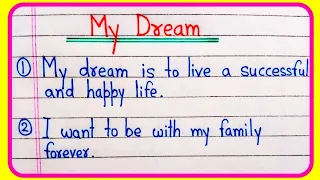 My Dream
① My dream is to live a successful
and happy life.
② I want to be with my family
forever.